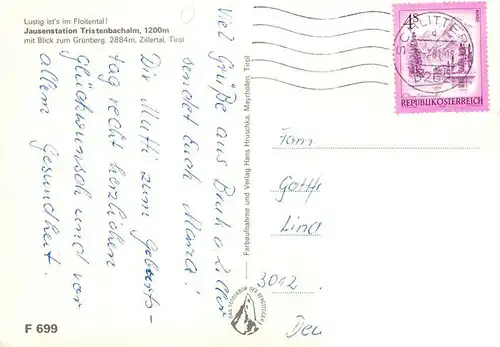 Lustig ist's im Floitental!
Jausenstation Tristenbachalm, 1200m
mit Blick zum Grünberg, 2884m, Zillertal, Tirol
Viel Grüße aus Bruck a Ziller
sendet Euch Maria!
Dir Mutti zum Geburts-
tag recht herzlichen
Glückwunsch und vor
allem Gesundheit.
F 699
Farbaufnahme und Verlag Hans Hruschka, Mayrhofen, Tirol
DAS EDITION DER BERGSTEIGER
4S
REPUBLIK ÖSTERREICH
SCHLITTERS
Fam
Gottfr
Lind
3012
Deu